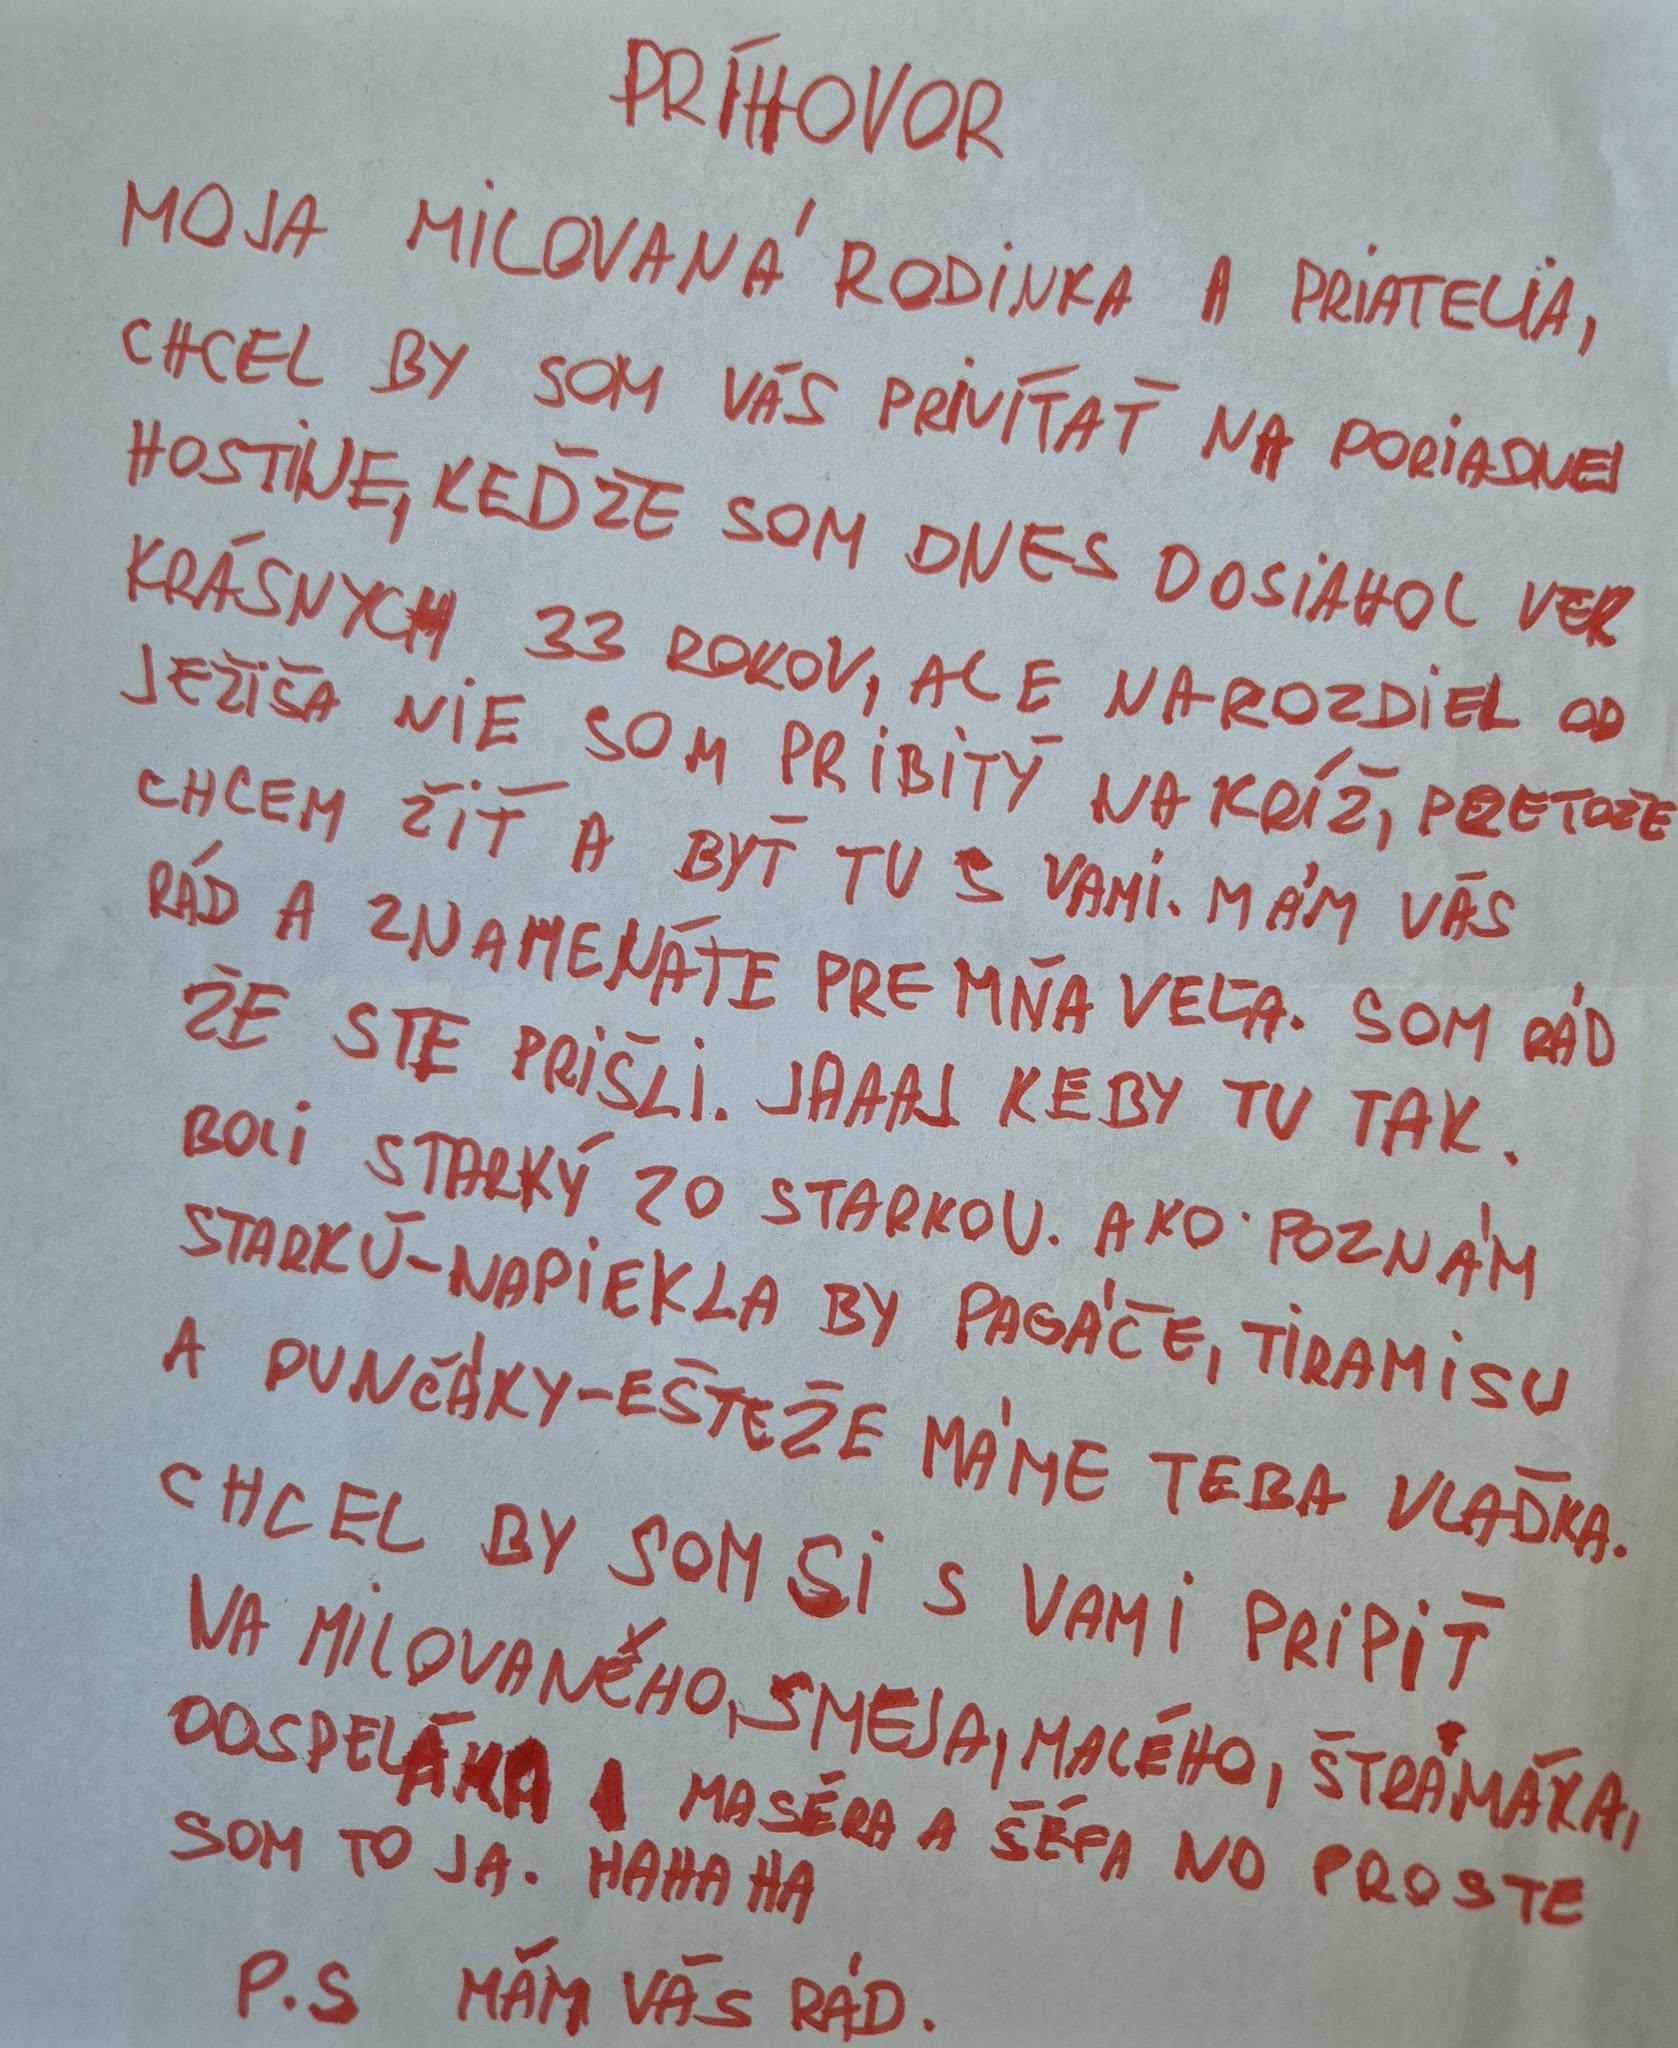 PRÍHOVOR
MOJA MILOVANÁ RODINKA A PRIATELIA,
CHCEL BY SOM VÁS PRIVÍTAŤ NA PORIADNEJ
HOSTINE, KEĎŽE SOM DNES DOSIAHOL VEK
KRÁSNYCH 33 ROKOV, ALE NAROZDIEL OD
JEŽIŠA NIE SOM PRIBITÝ NA KRÍŽ, PRETOŽE
CHCEM ŽIŤ A BYŤ TU S VAMI. MÁM VÁS
RÁD A ZNAMENÁTE PRE MŇA VEĽA. SOM RÁD
ŽE STE PRIŠLI. JAAAJ KEBY TU TAK.
BOLI STARKÝ ZO STARKOU. AKO POZNÁM
STARKÚ-NAPIEKLA BY PAGÁČE, TIRAMISU
A PUNČÁKY-EŠTEŽE MÁME TEBA VLAĎKA.
CHCEL BY SOM SI S VAMI PRIPIŤ
NA MILOVANÉHO, SMEJA, MALÉHO, ŠTRAMÁKA,
DOSPELÁKA, MASÉRA A ŠÉFA NO PROSTE
SOM TO JA. HAHAHA
P.S MÁM VÁS RÁD.